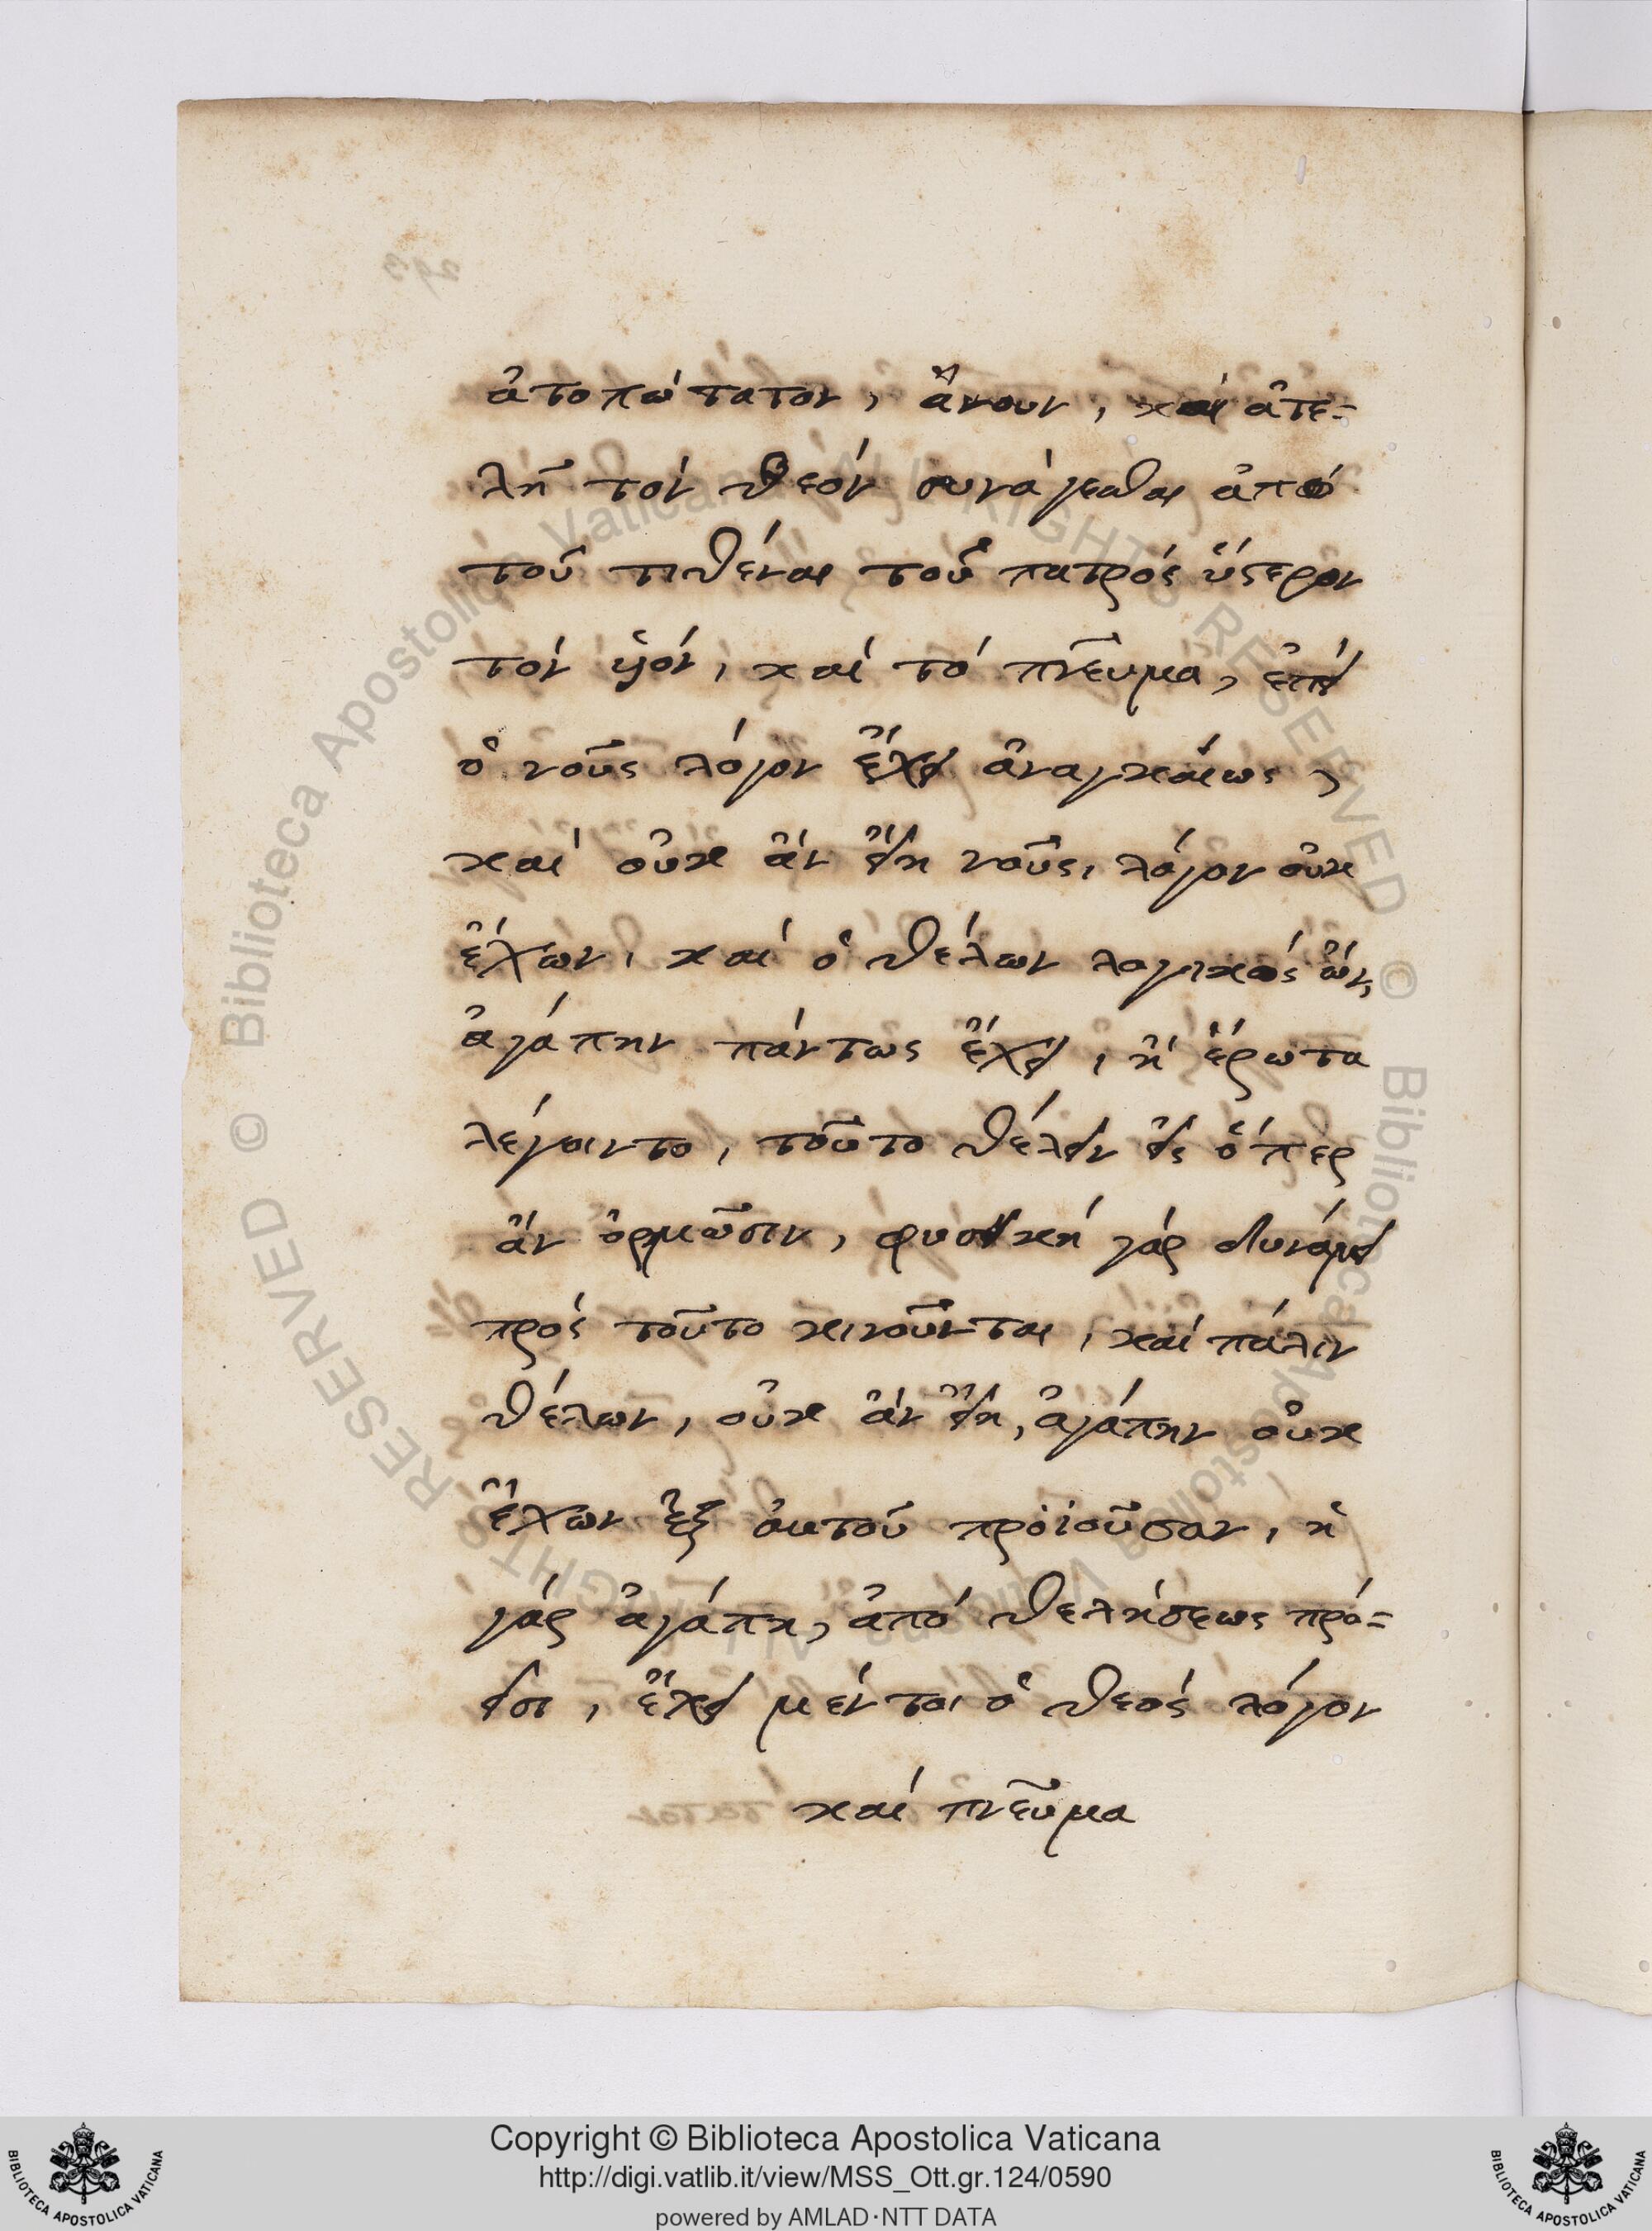 ἀτοπώτατον, ἄνουν, καὶ ἀτε-
λῆ τὸν θεὸν συνάγεσθαι ἀπὸ
τοῦ τιθέναι τοῦ πατρὸς ὕστερον
τὸν υἱόν, καὶ τὸ πνεῦμα, ἐπεὶ
ὁ νοῦς λόγον ἔχει ἀναγκαίως,
καὶ οὐκ ἂν εἴη νοῦς, λόγον οὐκ
ἔχων, καὶ ὁ θέλων λογικὸς ὤν,
ἀγάπην πάντως ἔχει, ἢ ἔρωτα
λέγοιντο, τοῦτο θέλειν εἰς ὅπερ
ἂν ὁρμῶσιν, φυσικῇ γὰρ δυνάμει
πρὸς τοῦτο κινοῦνται, καὶ πάλιν
θέλων, οὐκ ἂν εἴη, ἀγάπην οὐκ
ἔχων ἐξ αὐτοῦ προϊοῦσαν, ἡ
γὰρ ἀγάπη, ἀπὸ θελήσεως πρό-
εισι, ἔχει μέντοι ὁ θεὸς λόγον
καὶ πνεῦμα
Copyright © Biblioteca Apostolica Vaticana
http://digi.vatlib.it/view/MSS_Ott.gr.124/0590
powered by AMLAD·NTT DATA
BIBLIOTECA APOSTOLICA VATICANA
BIBLIOTECA APOSTOLICA VATICANA
© Biblioteca Apostolica Vaticana ALL RIGHTS RESERVED
© Biblioteca Apostolica Vaticana ALL RIGHTS RESERVED